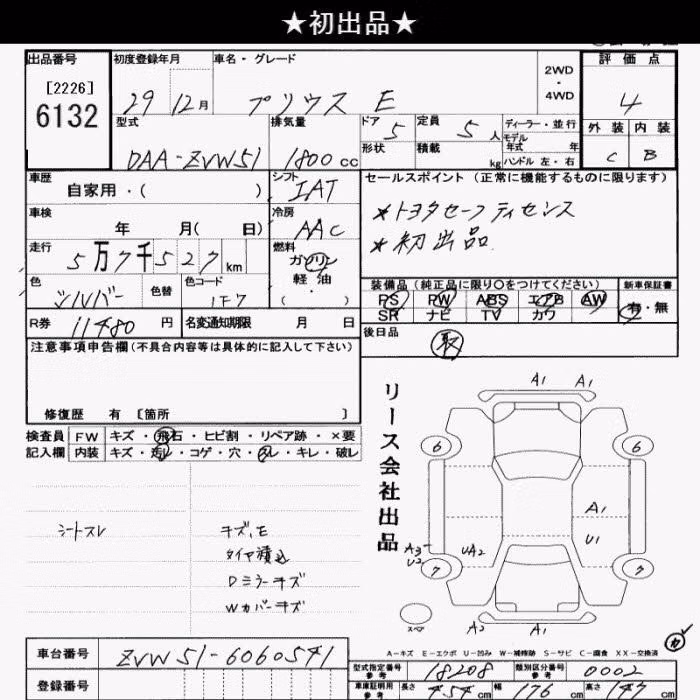 ★初出品★
出品番号
[2226]
6132
初度登録年月
29 12月
車名・グレード
プリウス E
2WD
・
4WD
評価点
4
外装 内装
C B
型式
DAA-ZVW51
排気量
1800 cc
ドア 5
形状
定員 5 人
積載 kg
ディーラー・並行
モデル
年式 年
ハンドル 左・右
車歴
自家用・( )
シフト
IAT
車検
年 月( 日)
冷房
AAC
走行
5万7千527km
燃料
ガソリン
軽油
・
( )
色
シルバー
色替
色コード
1F7
R券 11480 円
名変通知期限 月 日
セールスポイント(正常に機能するものに限ります)
*トヨタセーフティセンス
*初出品.
装備品(純正品に限り○をつけてください)
PS PW ABS エアB AW
SR ナビ TV カワ
新車保証書
有・無
後日品
取
注意事項申告欄(不具合内容等は具体的に記入して下さい)
修復歴 有 [箇所 ]
検査員
記入欄
FW キズ・飛石・ヒビ割・リペア跡・×要
内装 キズ・汚レ・コゲ・穴・スレ・キレ・破レ
シートスレ
キズ、E
タイヤ積込
Dミラーキズ
Wカバーキズ
リース会社出品
A1 A1
6 6
A1
U1
A3
U2
UA2
7 7
スペア
A2 A1
A−キズ E−エクボ U−凹み W−補修跡 S−サビ C−腐食 XX−交換済
車台番号
ZVW51-6060541
登録番号
型式指定番号
参考
18208
類別区分番号
参考
0002
車庫証明用
参考
長さ 454 cm
幅 176 cm
高さ 147 cm